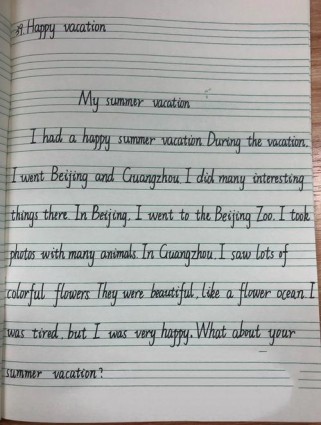 39. Happy vacation
My summer vacation
I had a happy summer vacation. During the vacation,
I went Beijing and Guangzhou. I did many interesting
things there. In Beijing, I went to the Beijing Zoo. I took
photos with many animals. In Guangzhou, I saw lots of
colorful flowers. They were beautiful, like a flower ocean. I
was tired, but I was very happy. What about your
summer vacation?